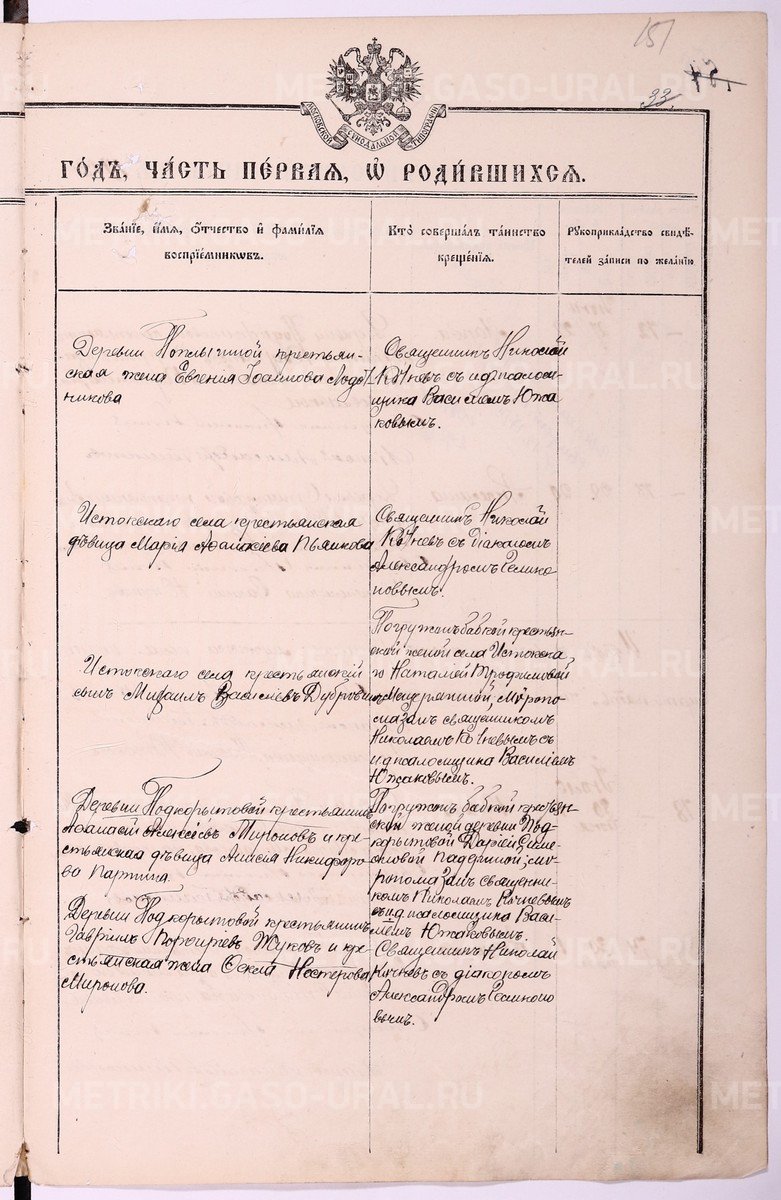 151
33.
МОСКОВСКОЙ СѴНОДАЛЬНОЙ ТИПОГРАФІИ
ГОДЪ, ЧАСТЬ ПЕРВАЯ, Ѡ РОДИВШИХСЯ.
Званіе, имя, отчество и фамилія
воспріемниковъ.
Кто совершалъ таинство
крещенія.
Рукоприкладство свидѣ-
телей записи по желанію
Деревни крестьян-
ская жена Евгенія
никова
Священникъ Николай
Кочневъ с и д псалом-
щика Василіемъ Южа
ковымъ.
Истокскаго села крестьянская
дѣвица Марія Пьянкова
Священникъ Николай
Кочневъ съ діакономъ
Александромъ
новымъ.
Истокскаго села крестьянскій
сынъ Михаилъ Василіевъ
Погружен бабкой крестьян-
ской женой села Истокска
го Наталіей Трофимовой
Мѵропо-
мазанъ священникомъ
Николаемъ Кочневымъ съ
и д псаломщика Василіемъ
Южаковымъ.
Деревни Подкорытовой крестьянинъ
Аѳанасій Алексѣевъ Миронов и кре-
стьянская дѣвица Анисія Никифоро-
ва
Погружен бабкой крестьян-
ской женой деревни Под-
корытовой Даріей Симе-
оновой мѵ-
ропомазанъ священни-
комъ Николаемъ Кочневымъ
съ и д псаломщика Васи-
ліемъ Южаковымъ.
Деревни Подкорытовой крестьянинъ
Гавріилъ Жуковъ и кре-
стьянская жена Ѳекла Нестерова
Миронова.
Священникъ Николай
Кочневъ съ діакономъ
Александромъ
вымъ.
METRIKI.GASO-URAL.RU